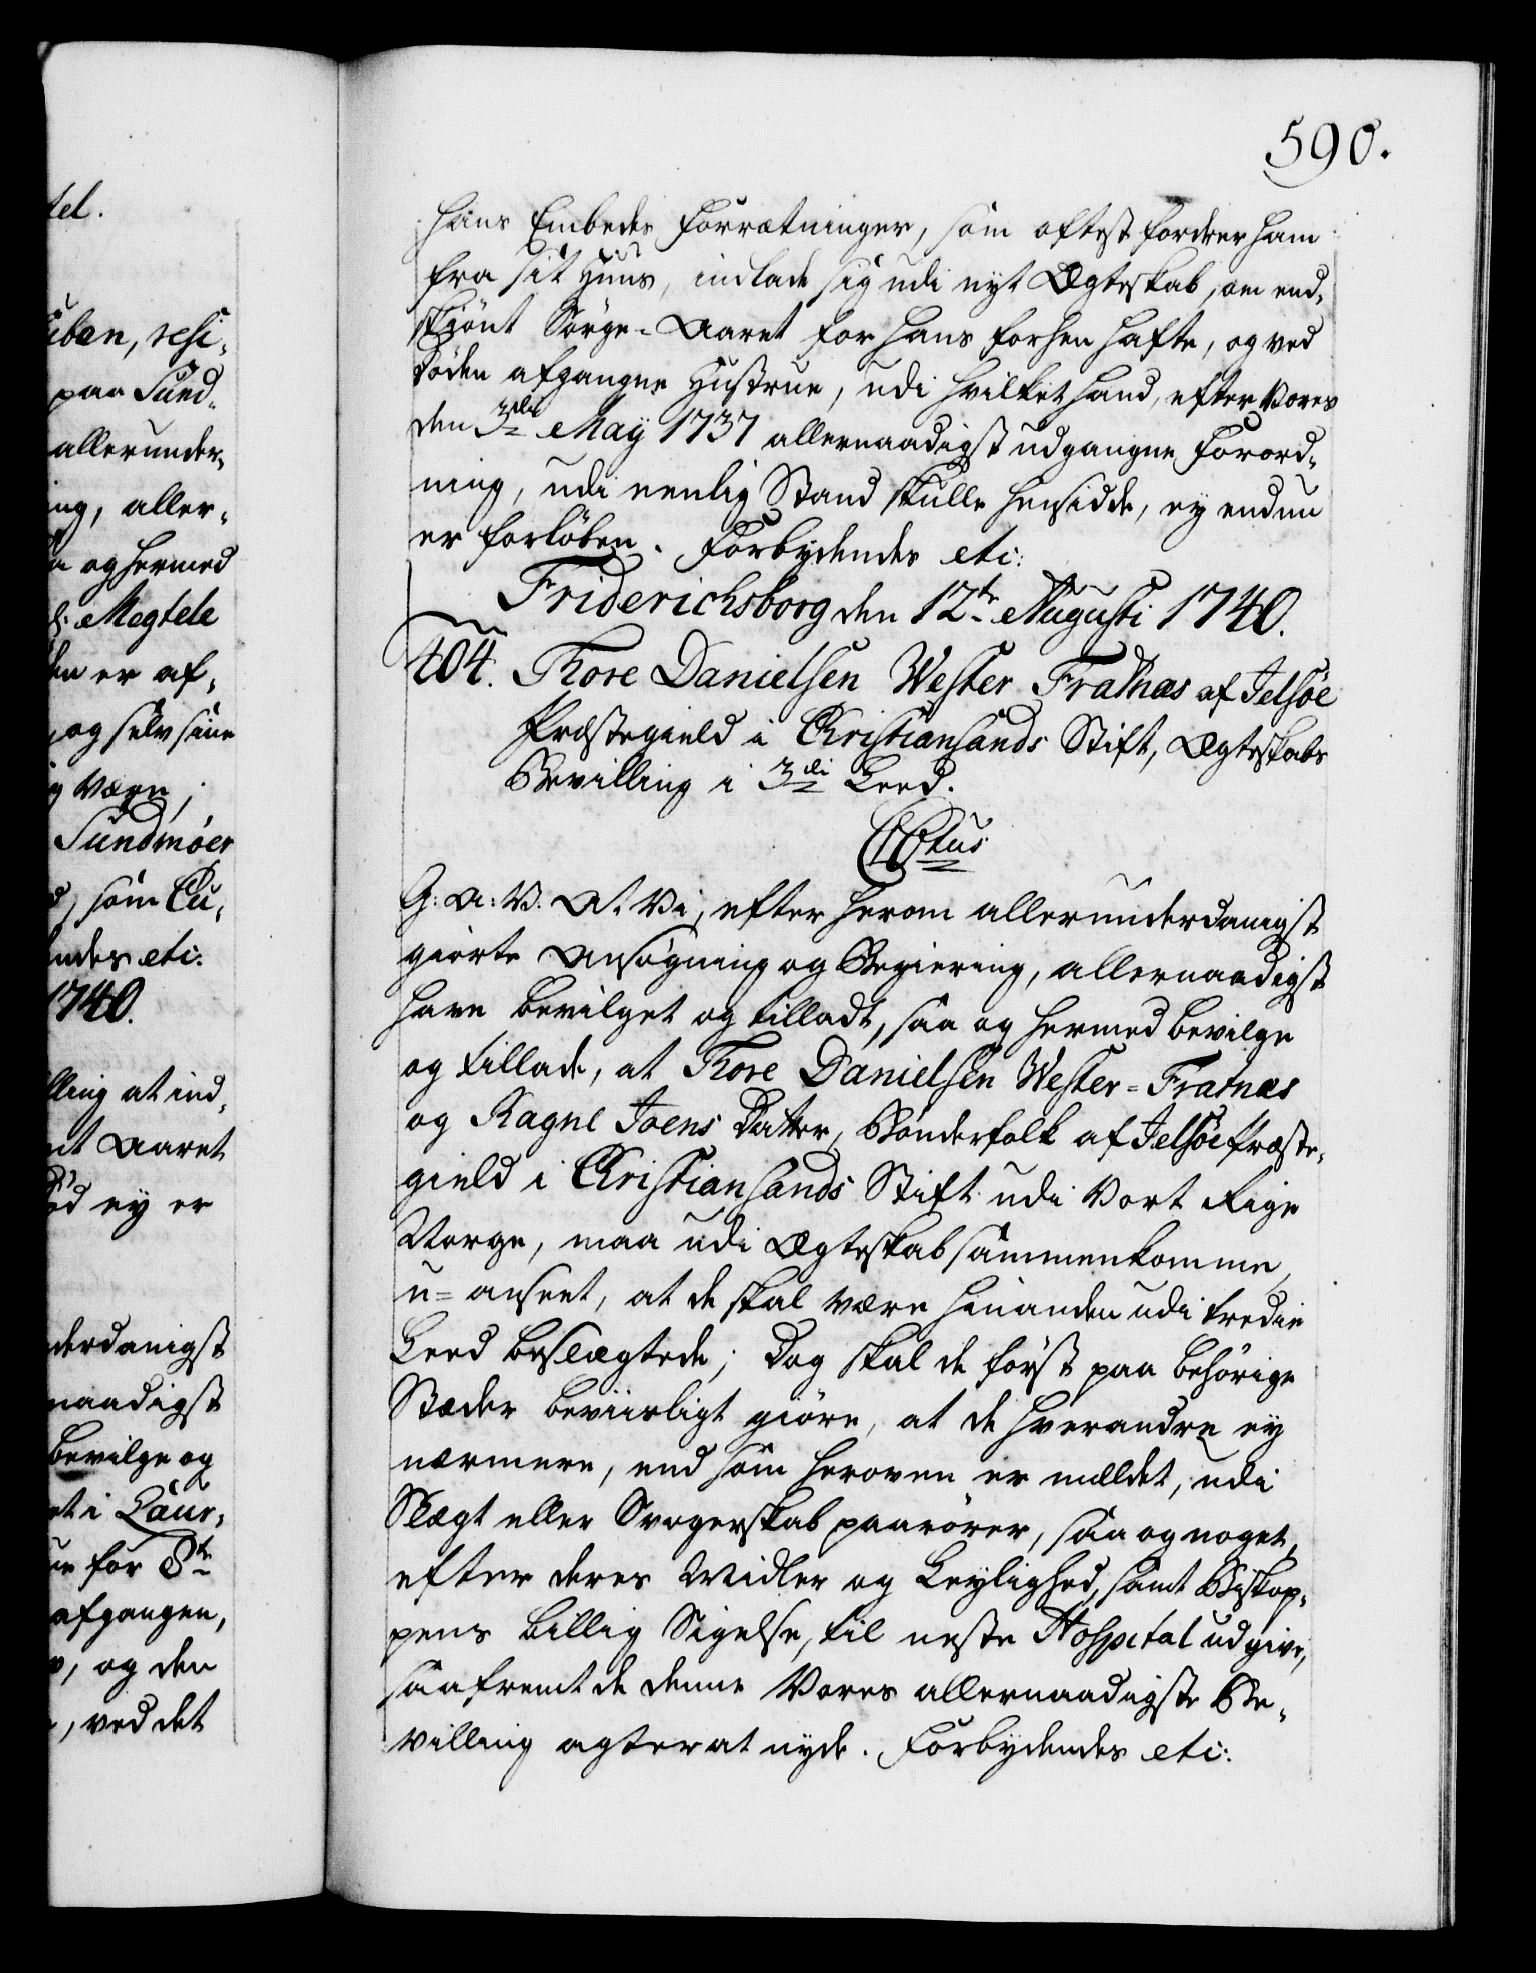 tel.
uban, resi-
paa Sund-
allerunder-
ing, aller-
a og hermed
d. Megtele
den er af-
og selv sine
g Være,
Sundmöer
d, som Cu-
endes etc:
1740.
lling at ind-
nt Aaret
ed ey er
derdanigst
naadigst
bevilge og
et i Laur-
ue for 8te
afgangen,
, og den
, ved det
590.
hans Embedes Forrætninger, som oftest fordrer ham
fra sit Huus, indlade sig udi nyt Ægteskab, om end-
skiönt Sörge-Aaret for hans forhen hafte, og ved
Döden afgangne Hustrue, udi hvilket hand, efter Vores
den 3die Maÿ 1737 allernaadigst udgangne Forord-
ning, udi eenlig Stand skulle hensidde, ey endnu
er forlöben. Forbydendes etc:
Friderichsborg den 12te Augusti 1740.
404. Tore Danielsen Wester Fratnæs af Jelsöe
Præstegield i Christiansands Stift, Ægteskabs
Bevilling i 3die Leed.
C6tus
G: A: V. A. Vi, efter herom allerunderdanigst
giorte Ansögning og Begiering, allernaadigst
have bevilget og tilladt, saa og hermed bevilge
og tillade, at Tore Danielsen Wester-Fratnæs
og Ragne Joens Datter, Bönderfolk af Jelsöe Præste-
gield i Christiansands Stift udi Vort Rige
Norge, maa udi Ægteskab sammenkomme,
u-anseet, at de skal være hinanden udi tredie
Leed beslægtede; Dog skal de först paa behörige
Stæder beviisligt giöre, at de hverandre ey
nærmere, end som heroven er meldet, udi
Slægt eller Svogerskab paarörer, saa og noget,
efter deres Midler og Leylighed, samt Biskop-
pens billig Sigelse, til neste Hospital udgive,
saafremt de denne Vores allernaadigste Be-
villing agter at nyde. Forbydendes etc: